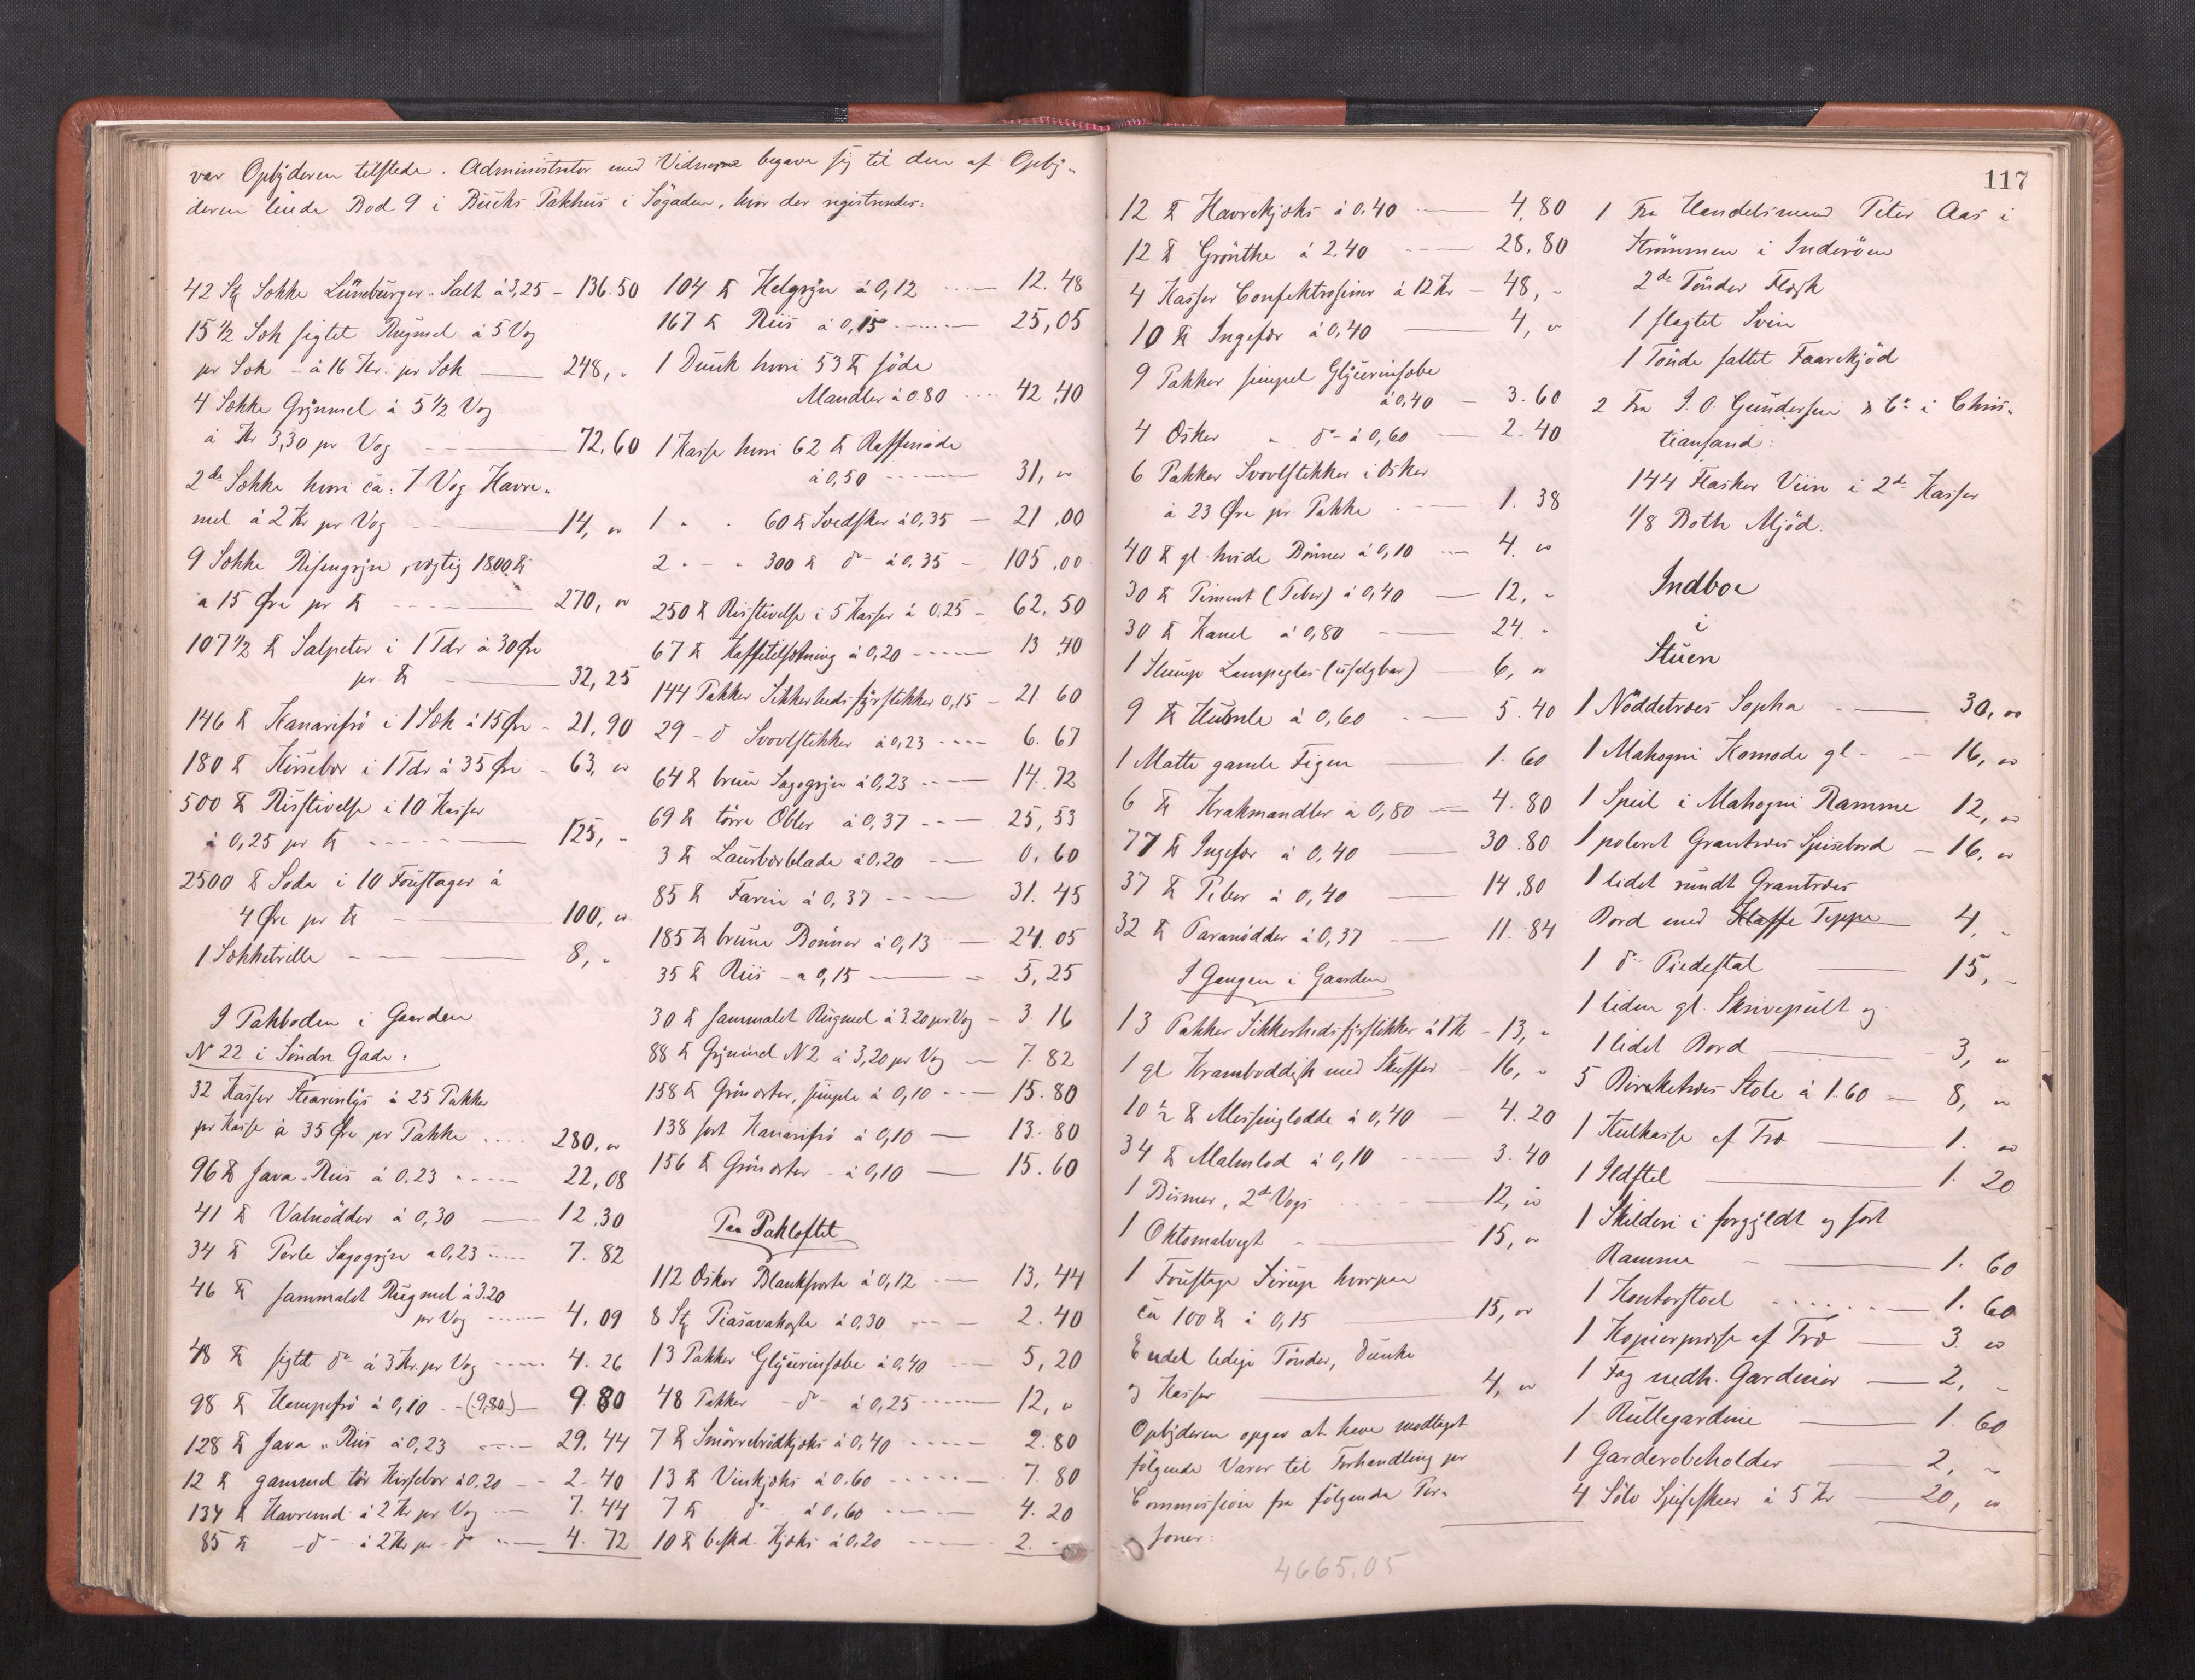 var Opbyderen tilstede. Administrator med Vidnerne begave sig til den af Opby-
deren leiede Bod 9 i Büchs Pakhus i Søgaden, hvor der registreredes:
42 Stk Sække Lüneburger-Salt à 3,25 - 136.50
15 1/2 Sæk sigtet Rugmel à 5 Vog
pr Sæk - à 16 Kr. pr Sæk 248, "
4 Sække Grynmel à 5 1/2 Vog
à Kr 3,30 pr Vog 72,60
2de Sække hvori ca. 7 Vog Havre-
mel à 2 Kr pr Vog 14, "
9 Sække Risengryn, vægtig 1800 ℔
a 15 Øre pr ℔ 270, "
107 1/2 ℔ Salpeter i 1 Tdr à 30 Øre
pr ℔ 32,25
146 ℔ Kanarifrö i 1 Sæk à 15 Øre - 21,90
180 ℔ Kirsebær i 1 Tdr à 35 Øre - 63, "
500 ℔ Risstivelse i 10 Kasser
à 0,25 pr ℔ 125, -
2500 ℔ Soda i 10 Foustager à
4 Øre pr ℔ 100, "
1 Sækketrille 8, "
I Pakboden i Gaarden
N 22 i Søndre Gade:
32 Kasser Stearinlys à 25 Pakker
pr Kasse à 35 Øre pr Pakke 280, "
96 ℔ Java-Riis à 0.23 22,08
41 ℔ Valnødder à 0,30 12.30
34 ℔ Perle Sagogryn a 0,23 7.82
46 ℔ sammalet Rugmel à 3.20
pr Vog 4.09
48 ℔ sigtet do à 3 Kr. pr Vog 4.26
98 ℔ Hampefrö à 0,10 - (9,80) 9.80
128 ℔ Java "Riis à 0,23 29,44
12 ℔ gammel tör Kirsebær à 0,20 - 2.40
134 ℔ Havremel à 2 Kr pr Vog 7.44
85 ℔ - do - à 2 Kr pr - do 4.72
104 ℔ Helgryn à 0,12 12.48
167 ℔ Riis à 0,15 25,05
1 Dunk hvori 53 ℔ söde
Mandler à 0.80 42,40
1 Kasse hvori 62 ℔ Raffinade
à 0,50 31, "
1 " " 60 ℔ Svedsker à 0,35 - 21,00
2 " - " 300 ℔ do - à 0.35 - 105,00
250 ℔ Risstivelse i 5 Kasser à 0.25 - 62.50
67 ℔ Kaffetilsætning à 0,20 13.40
144 Pakker Sikkerhedsfyrstikker 0,15 - 21.60
29 - do Svovlstikker à 0,23 6.67
64 ℔ brun Sagogryn à 0,23 14.72
69 ℔ törre Æbler à 0,37 25,53
3 ℔ Laurbærblade à 0.20 0,60
85 ℔ Farin à 0,37 31.45
185 ℔ brune Bønner à 0,13 24.05
35 ℔ Riis - a 0,15 5,25
30 ℔ sammalet Rugmel à 3.20 pr Vog - 3.16
88 ℔ Grynmel N 2 à 3,20 pr Vog 7.82
158 ℔ Grönerter, simple à 0,10 15.80
138 sort Kanarifrö à 0,10 13.80
156 ℔ Grönerter - à 0,10 15.60
Paa Pakloftet
112 Æsker Blanksværte à 0,12 13,44
8 Stk Piasavakoste à 0,30 2.40
13 Pakker Glycerinsæbe à 0,40 5,20
48 Pakker - do - à 0,25 12, "
7 ℔ Smörrebrödkjæks à 0,40 2.80
13 ℔ Vinkjæks à 0.60 7.80
7 ℔ do - à 0,60 4.20
10 ℔ beskd. Kjæks à 0,20 2. -
117
12 ℔ Havrekjæks à 0.40 4,80
12 ℔ Grönthe à 2.40 28,80
4 Kasser Confektrosiner à 12 Kr - 48, -
10 ℔ Ingefær à 0,40 4, "
9 Pakker simpel Glycerinsæbe
à 0,40 - 3.60
4 Æsker " do - à 0,60 2.40
6 Pakker Svovlstikker i Æsker
à 23 Øre pr Pakke 1.38
40 ℔ gl hvide Bønner à 0,10 4. "
30 ℔ Piment (Peber) à 0,40 12, -
30 ℔ Kanel à 0,80 24. -
1 Slump Lampeglas (usælgbar) 6, "
9 ℔ Humle à 0,60 5.40
1 Matte gamle Figen 1.60
6 ℔ Krakmandler à 0,80 4.80
77 ℔ Ingefær à 0,40 30.80
37 ℔ Peber à 0,40 14,80
32 ℔ Paranødder à 0,37 11.84
I Gangen i Gaarden
13 Pakker Sikkerhedsfyrstikker à 1 Kr - 13, "
1 gl Kramboddisk med Skuffer - 16, "
10 1/2 ℔ Messinglodde à 0,40 4.20
34 ℔ Malmlod à 0,10 3.40
1 Bismer, 2de Vogs 12, "
1 Oktomalvægt 15, "
1 Foustage Sirup hvorpaa
ca 100 ℔ à 0,15 15, "
Endel ledige Tønder, Dunke
og Kasser 4, "
Opbyderen opgav at have modtaget
følgende Varer til Forhandling pr
Commission fra følgende Per-
soner:
4665.05
1 Fra Handelsmand Peter Aas i
Strømmen i Inderøen
2de Tønder Flesk
1 slagtet Svin
1 Tønde saltet Faarekjød
2 Fra J. O. Gundersen & Co i Chris-
tiansand:
144 Flasker Viin i 2de Kasser
1/8 Both Mjød.
Indboe
i
Stuen
1 Nøddetræes Sopha 30, "
1 Mahogni Komode gl - 16, "
1 Speil i Mahogni Ramme 12, "
1 poleret Grantræes Spisebord - 16, "
1 lidet rundt Grantræes
Bord med Klaffe Teppe 4, -
1 do Piedestal 15, -
1 liden gl. Skrivepult og
1 lidet Bord 3, "
5 Birketræes Stole à 1.60 8, "
1 Kulkasse af Træ 1. "
1 Ildstel 1.20
1 Skilderi i forgyldt og sort
Ramme 1.60
1 Kontorstoel 1.60
1 Kopierpresse af Træ 3. "
1 Fag nedh. Gardiner 2, -
1 Rullegardine 1.60
1 Garderobeholder 2, -
4 Sölv Spiseskeer à 5 Kr 20, "